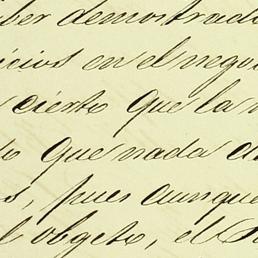 ber demostrado
icios en el nego
cierto que la
o que nada d
s, pues aunque
l obgeto, el